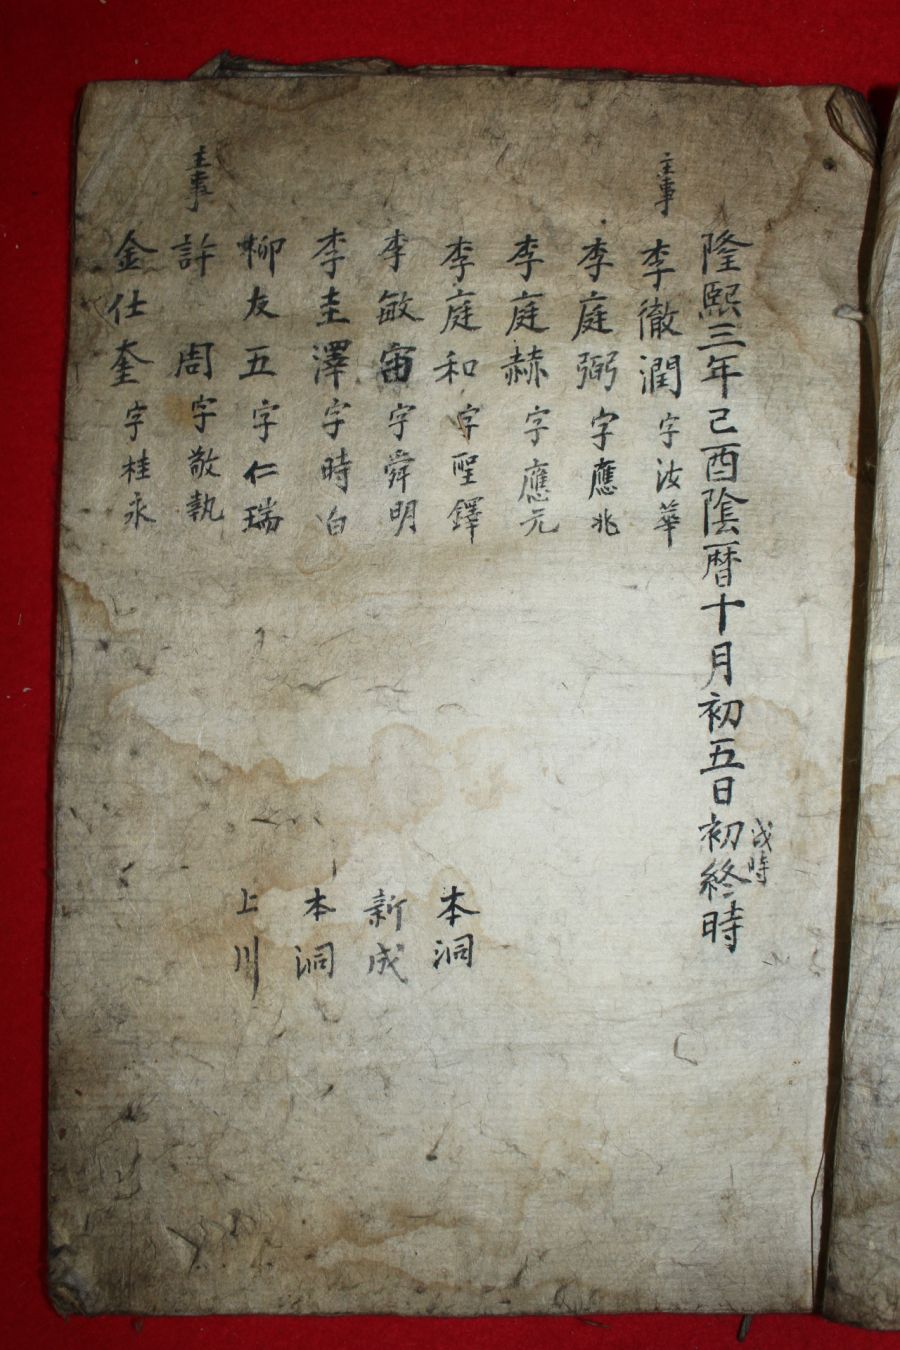 隆熙三年己酉陰暦十月初五日初終時
戌時
主事
李徹潤 字汝華
李庭弼 字應兆
李庭赫 字應元
李庭和 字聖鐸 本洞
李敏宙 字舜明 新成
李圭澤 字時白 本洞
柳友五 字仁瑞 上川
主事
許 周 字敬執
金仕奎 字桂永